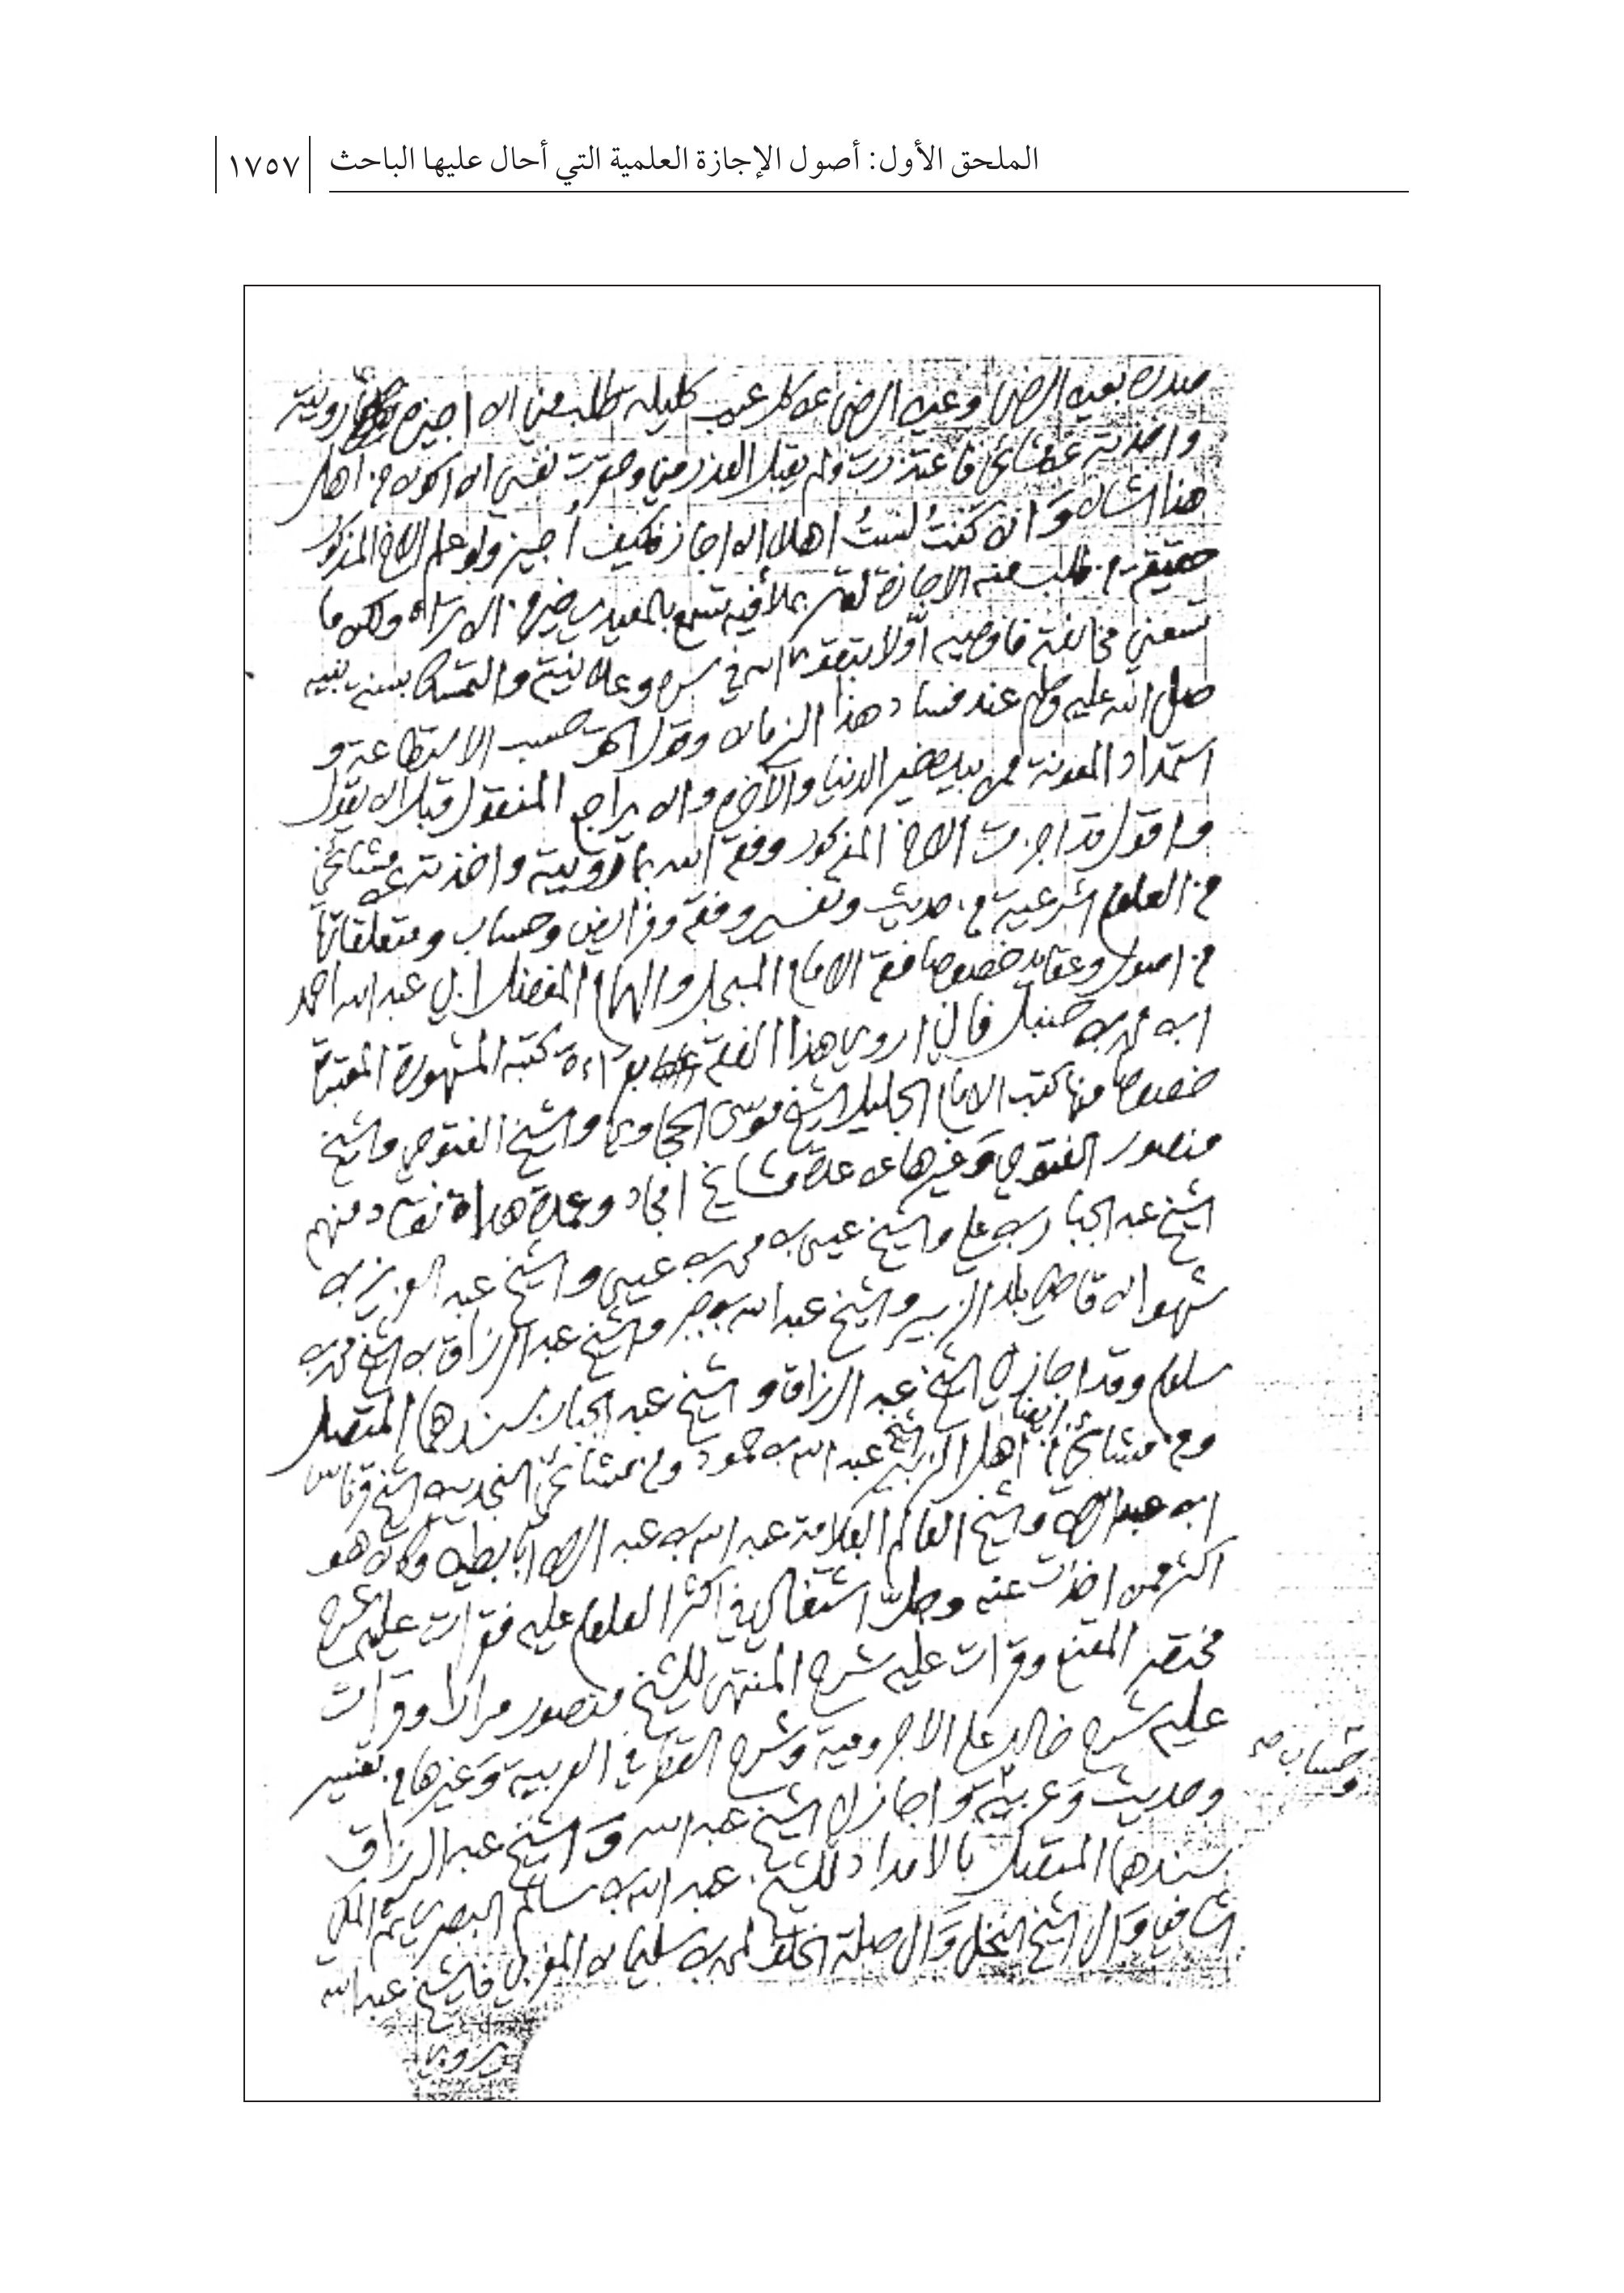 الملحق الأول: أصول الإجازة العلمية التي أحال عليها الباحث
١٧٥٧
بعين الرضى وعين الرضى عن كل عيب كليله طلب مني ان اجيزه بما رويته
واخذته عن مشائخي فاعتذرت ولم يقبل العذر مني وحقرت نفسي ان اكون من اهل
هذا الشان وان كنتُ لستُ اهلا ان اجاز فكيف أجيز ولو علم الاخ المذكور
حقيقة من طلب منه الاجازة تسمع بالمعيدي خير من ان تراه ولكن ما
تسعني مخالفته فاوصيه أوّلا بتقوى الله في سره وعلانيته والتمسك بسنة نبيه
صلى الله عليه وسلم عند فساد هذا الزمان وقول الحق حسب الاستطاعة و
استمداد المعونة ممن بيده خير الدنيا والآخرة وان يراجع المنقول قبل ان يقول
واقول قد اجزت الاخ المذكور وفقه الله بما رويته واخذته عن مشائخي
من العلوم الشرعية من حديث وتفسير وفقه وفرائض وحساب ومتعلقاتها
من اصول وعقائد خصوصا فقه الامام المبجل والهمام المفضل ابي عبد الله احمد
ابن محمد بن حنبل فاني اروي هذا الفقه بقراءة كتبه المشهورة المعتبرة
خصوصا منها كتب الامام الجليل الشيخ موسى الحجاوي والشيخ الفتوحي والشيخ
منصور الفتوحي وغيرها عن عدة مشايخ امجاد وعمدة هداة نقاد منهم
الشيخ عبد الجبار بن علي والشيخ عيسى بن محمد بن عيسى والشيخ عبد العزيز بن
شهوان قاضي بلد الزبير والشيخ عبد الله بن جبر والشيخ عبد الرزاق بن الشيخ محمد بن
سلوم وقد اجازني الشيخ عبد الرزاق والشيخ عبد الجبار بسندهما المتصل
ومن مشائخي ايضا من اهل الزبير الشيخ عبد الله بن حمود ومن مشائخي النجديين الشيخ قرناس
ابن عبد الرحمن والشيخ العالم العلامة عبد الله بن عبد الرحمن ابا بطين وكان هو
اكثر ممن اخذت عنه وجلّ اشتغالي في اكثر العلوم عليه فقرات عليه شرح
مختصر المقنع وقرات عليه شرح المنتهى للشيخ منصور مرارا وقرات
عليه شرح خالد على الاجرومية وشرح القطر في العربية وغيرها من تفسير
وحديث وعربية واجازني الشيخ عبد الله والشيخ عبد الرزاق
وحساب صح
بسندهما المتصل بالامداد للشيخ عبد الله بن سالم البصري ثم المكي
الشافعي والى الشيخ النخلي والى صلة الخلف لمحمد بن سليمان المغربي فالشيخ عبد الله
يروي